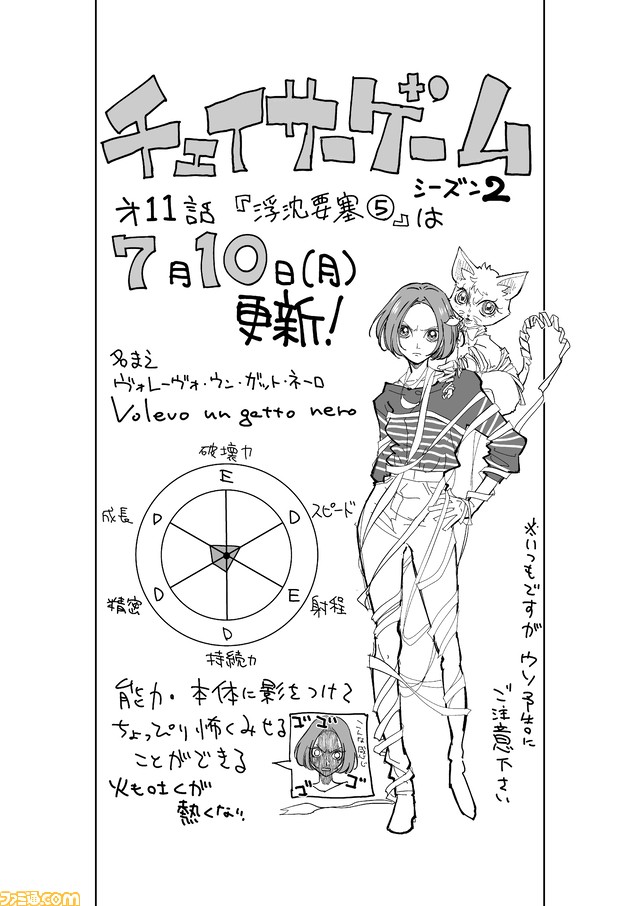 チェイサーゲーム
シーズン2
才11話『浮沈要塞⑤』は
7月10日(月)
更新!
名まえ
ヴォレーヴォ・ウン・ガット・ネーロ
Volevo un gatto nero
破壊力
E
成長
D
D
スピード
精密
D
E
射程
D
持続力
能力・本体に影をつけて
ちょっぴり怖くみせる
ことができる
火も吐くが
熱くない
ゴゴ
ゴ
ゴ
※いつもですが ウソ予告に
ご注意下さい
ファミ通.com